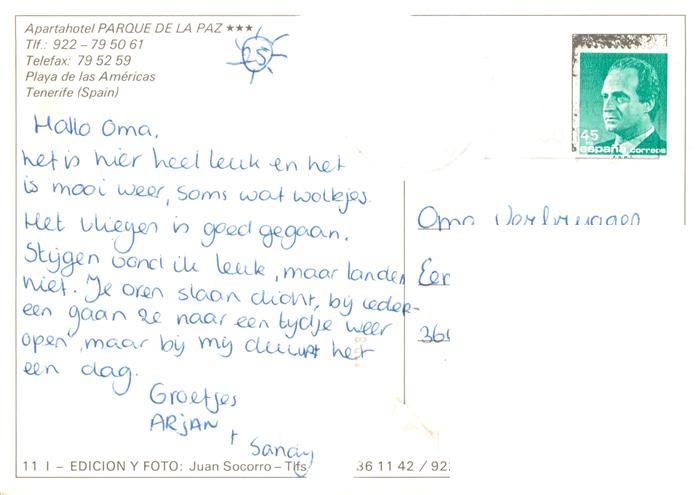 Apartahotel PARQUE DE LA PAZ ★★★
Tlf.: 922 – 79 50 61
Telefax: 79 52 59
Playa de las Américas
Tenerife (Spain)
25
45
españa correos
Hallo Oma,
het is hier heel leuk en het
is mooi weer, soms wat wolkjes.
Het vliegen is goed gegaan.
Stijgen vond ik leuk, maar landen
niet. Je oren slaan dicht, bij ieder-
een gaan ze naar een tijdje weer
open, maar bij mij duurt het
een dag.
Groetjes
ARJAN
+ Sandy
Oma
Een
36
11 I – EDICION Y FOTO: Juan Socorro – Tlfs
36 11 42 / 922